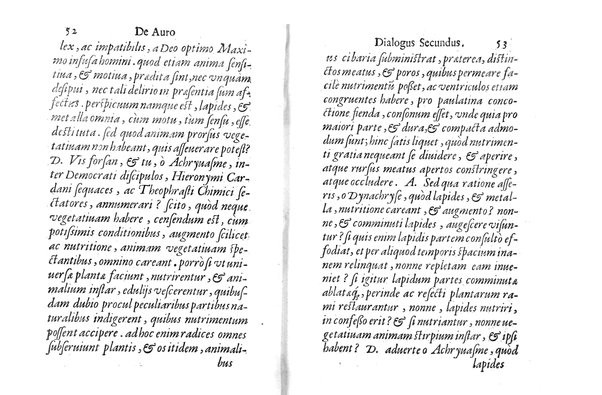 52 De Auro
lex, ac impatibilis, a Deo optimo Maxi-
mo infusa homini. quod etiam anima sensi-
tiua, & motiua, prædita sint, nec vnquam
desipui, nec tali delirio in præsentia sum af-
fectus. perspicuum namque est, lapides, &
metalla omnia, cum motu, tum sensu, esse
destituta. sed quòd animam prorsus vege-
tatiuam non habeant, quis asseuerare potest?
D. Vis forsan, & tu, ò Achryuasme, in-
ter Democrati discipulos, Hieronymi Car-
dani sequaces, ac Theophrasti Chimici se-
ctatores, annumerari? scito, quòd neque
vegetatiuam habere, censendum est, cum
potissimis conditionibus, augmento scilicet
ac nutritione, animam vegetatiuam spe-
ctantibus, omnino careant. porrò si vt uni-
uersæ plantæ faciunt, nutrirentur, & ut
animalium instar, edulijs vescerentur, quibus-
dam dubio procul peculiaribus partibus na-
turalibus indigerent, quibus nutrimentum
possent accipere. ad hoc enim radices omnes
subseruiunt plantis, & os itidem, animali-
bus
Dialogus Secundus. 53
us cibaria subministrat, præterea, distin-
ctos meatus, & poros, quibus permeare fa-
cile nutrimentis posset, ac ventriculos etiam
congruentes habere, pro paulatina conco-
ctione fienda, consonum esset, vnde quia pro
maiori parte, & dura, & compacta admo-
dum sunt; hinc satis liquet, quòd nutrimen-
ti gratia nequeant se diuidere, & aperire,
atque rursus meatus apertos constringere,
atque occludere. A. Sed qua ratione asse-
ris, o Dynachryse, quòd lapides, & metal-
la, nutritione careant, & augmento? non-
ne, & comminuti lapides, augescere visun-
tur? si quis enim lapidis partem consultò ef-
fodiat, et per aliquod temporis spacium inana-
nem relinquat, nonne repletam eam inue-
niet? si igitur lapidum partes comminutæ
ablatæq́;, perinde ac resecti plantarum ra-
mi restaurantur, nonne, lapides nutriri,
in confesso erit? & si nutriantur, nonne ve-
getatiuam animam stirpium instar, & ipsi
habent? D. aduerte o Achryuasme, quòd
lapides